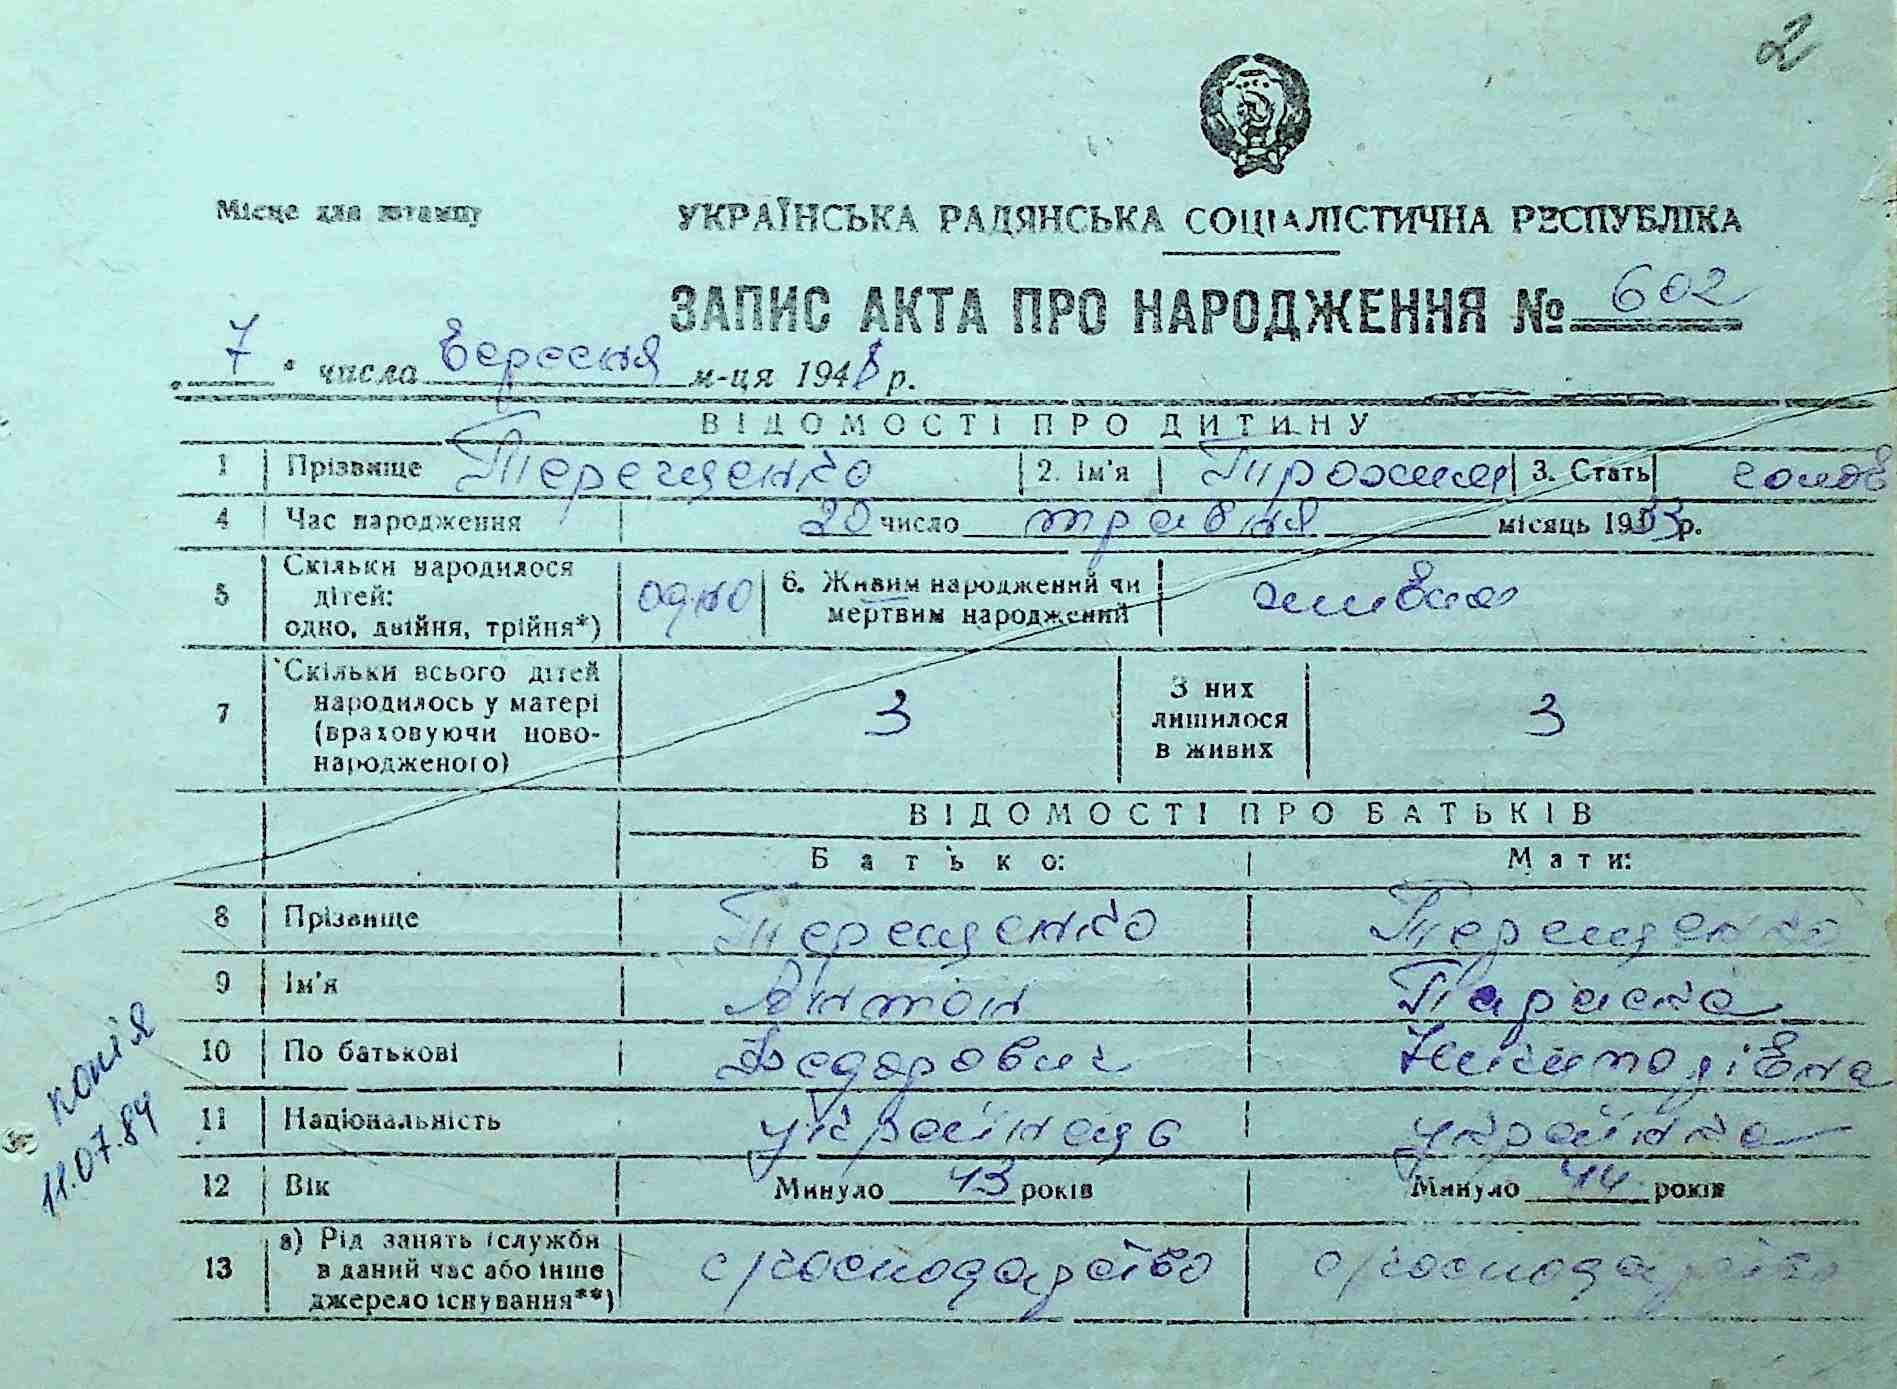 2
Місце для штампу
УКРАЇНСЬКА РАДЯНСЬКА СОЦІАЛІСТИЧНА РЕСПУБЛІКА
ЗАПИС АКТА ПРО НАРОДЖЕННЯ № 602
„ 7 " числа вересня м-ця 1948 р.
ВІДОМОСТІ ПРО ДИТИНУ
1 Прізвище Терещенко 2. Ім'я Трохим 3. Стать чолов
4 Час народження 20 число травня місяць 1933 р.
5 Скільки народилося дітей: одно, двійня, трійня*) одно 6. Живим народжений чи мертвим народжений живим
7 Скільки всього дітей народилось у матері (враховуючи новонародженого) 3 З них лишилося в живих 3
ВІДОМОСТІ ПРО БАТЬКІВ
Батько: Мати:
8 Прізвище Терещенко Терещенко
9 Ім'я Антон Параска
10 По батькові Федорович
11 Національність українець українка
12 Вік Минуло 43 років Минуло 44 років
13 а) Рід занять (служби в даний час або інше джерело існування**) с/господарство с/господарство
копія
11.07.84